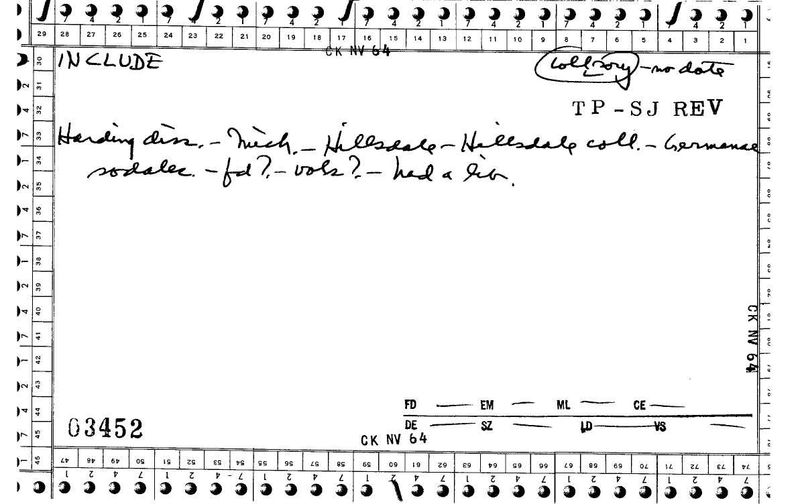 29 28 27 26 25 24 23 22 21 20 19 18 17 16 15 14 13 12 11 10 9 8 7 6 5 4 3 2 1
CK NV 64
INCLUDE
coll soc – no date
TP-SJ REV
Harding diss. – Mich. – Hillsdale – Hillsdale coll. – Germanae
sodales. – fd? – vols? – had a lib.
30
31
32
33
34
35
36
37
38
39
40
41
42
43
44
45
46
CK NV 64
FD EM ML CE
DE SZ LD VS
03452
CK NV 64
47 48 49 50 51 52 53 54 55 56 57 58 59 60 61 62 63 64 65 66 67 68 69 70 71 72 73 74